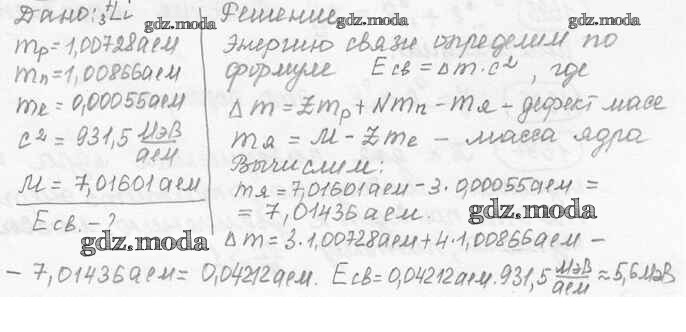 Дано: ⁷₃Li
mp = 1,00728 аем
mn = 1,00866 аем
me = 0,00055 аем
c² = 931,5 МэВ/аем
M = 7,01601 аем
Eсв. - ?
gdz.moda
Решение
gdz.moda
Энергию связи определим по
формуле Eсв = Δm·c², где
Δm = Zmp + Nmn - mя - дефект масс
mя = M - Zme - масса ядра
Вычислим:
mя = 7,01601 аем - 3·0,00055 аем =
= 7,01436 аем.
gdz.moda
Δm = 3·1,00728 аем + 4·1,00866 аем -
- 7,01436 аем = 0,04212 аем. Eсв = 0,04212 аем·931,5 МэВ/аем ≈ 5,6 МэВ
gdz.moda